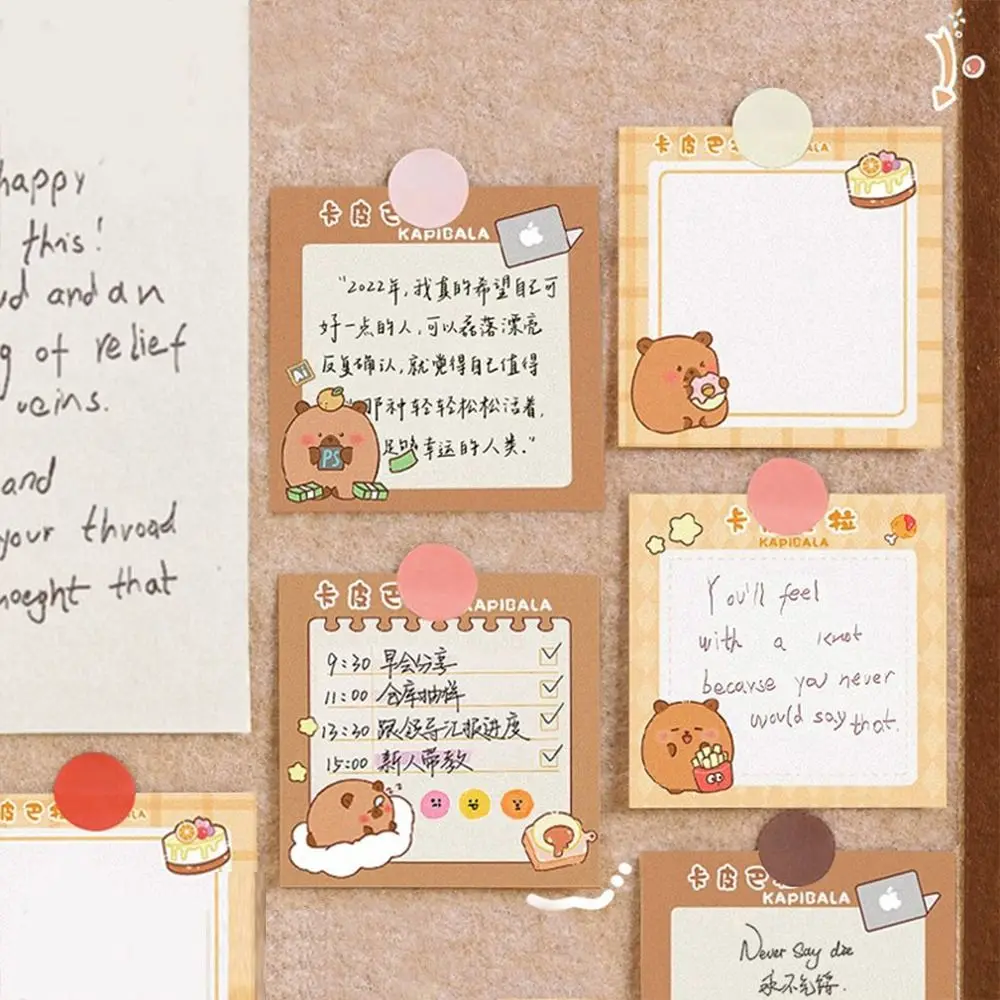 happy
this!
and an
of relief
veins.
and
your throad
that
卡皮巴
KAPIBALA
"2022年,我真的希望自己可
好一点的人,可以磊落漂亮
反复确认,就觉得自己值得
那种轻轻松松活着,
足够幸运的人类."
Ai
PS
卡皮巴
BALA
卡皮巴
KAPIBALA
9:30 早会分享
11:00 仓库抽样
13:30 跟领导汇报进度
15:00 新人带教
卡 拉
KAPIBALA
You'll feel
with a knot
because you never
would say that.
卡皮巴
LA
卡皮巴
KAPIBALA
Never say die
永不气馁.